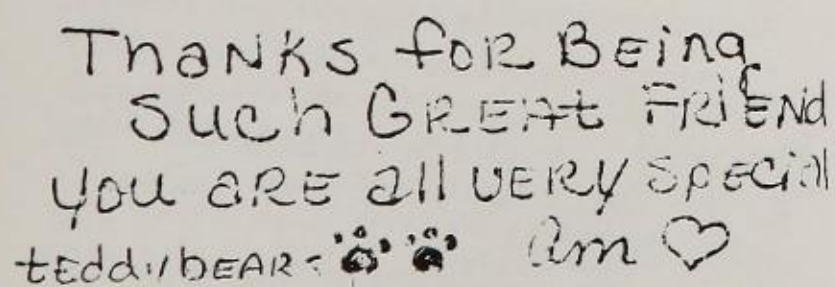 Thanks for Being
Such Great Friend
you are all very special
teddybear - am ♡